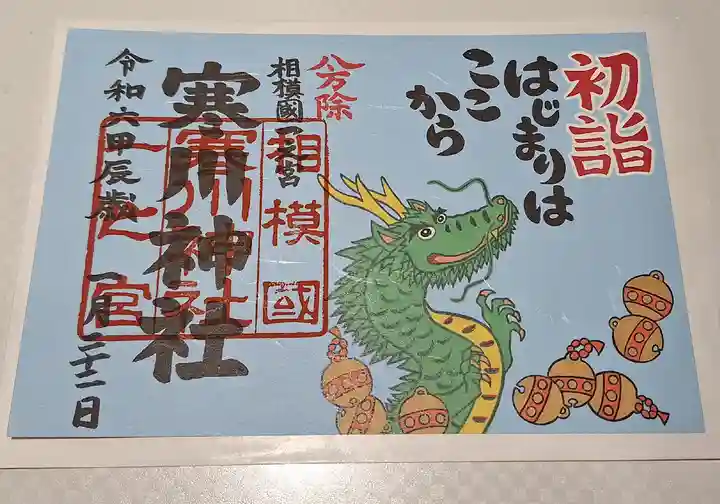 初詣
はじまりは
ここ
から
八方除
相模國一之宮
寒川神社
令和六甲辰歳 一月二十二日
相模國
寒川神社
一之宮